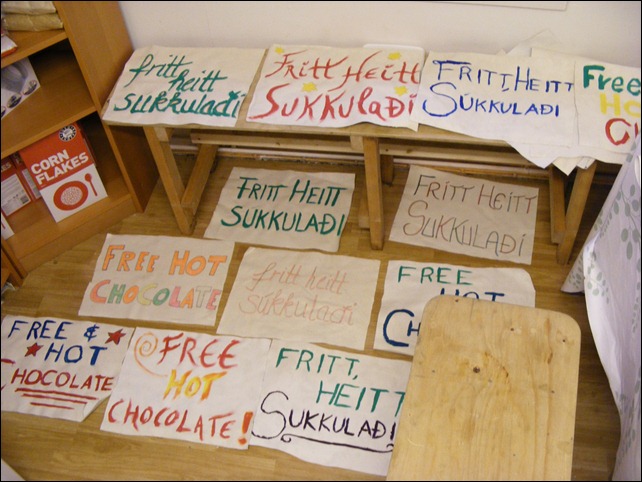 fritt
heitt
sukkulaði
FRITT HEITT
SUKKULAÐI
FRITT, HEITT
SÚKKULAÐI
FREE
HO
C
CORN
FLAKES
FRITT HEITT
SUKKULAÐI
FRITT HEITT
SUKKULAÐI
FREE HOT
CHOCOLATE
fritt heitt
súkkulaði
FREE
HOT
CH
FREE &
HOT
CHOCOLATE
FREE
HOT
CHOCOLATE!
FRITT,
HEITT
SUKKULAÐI!